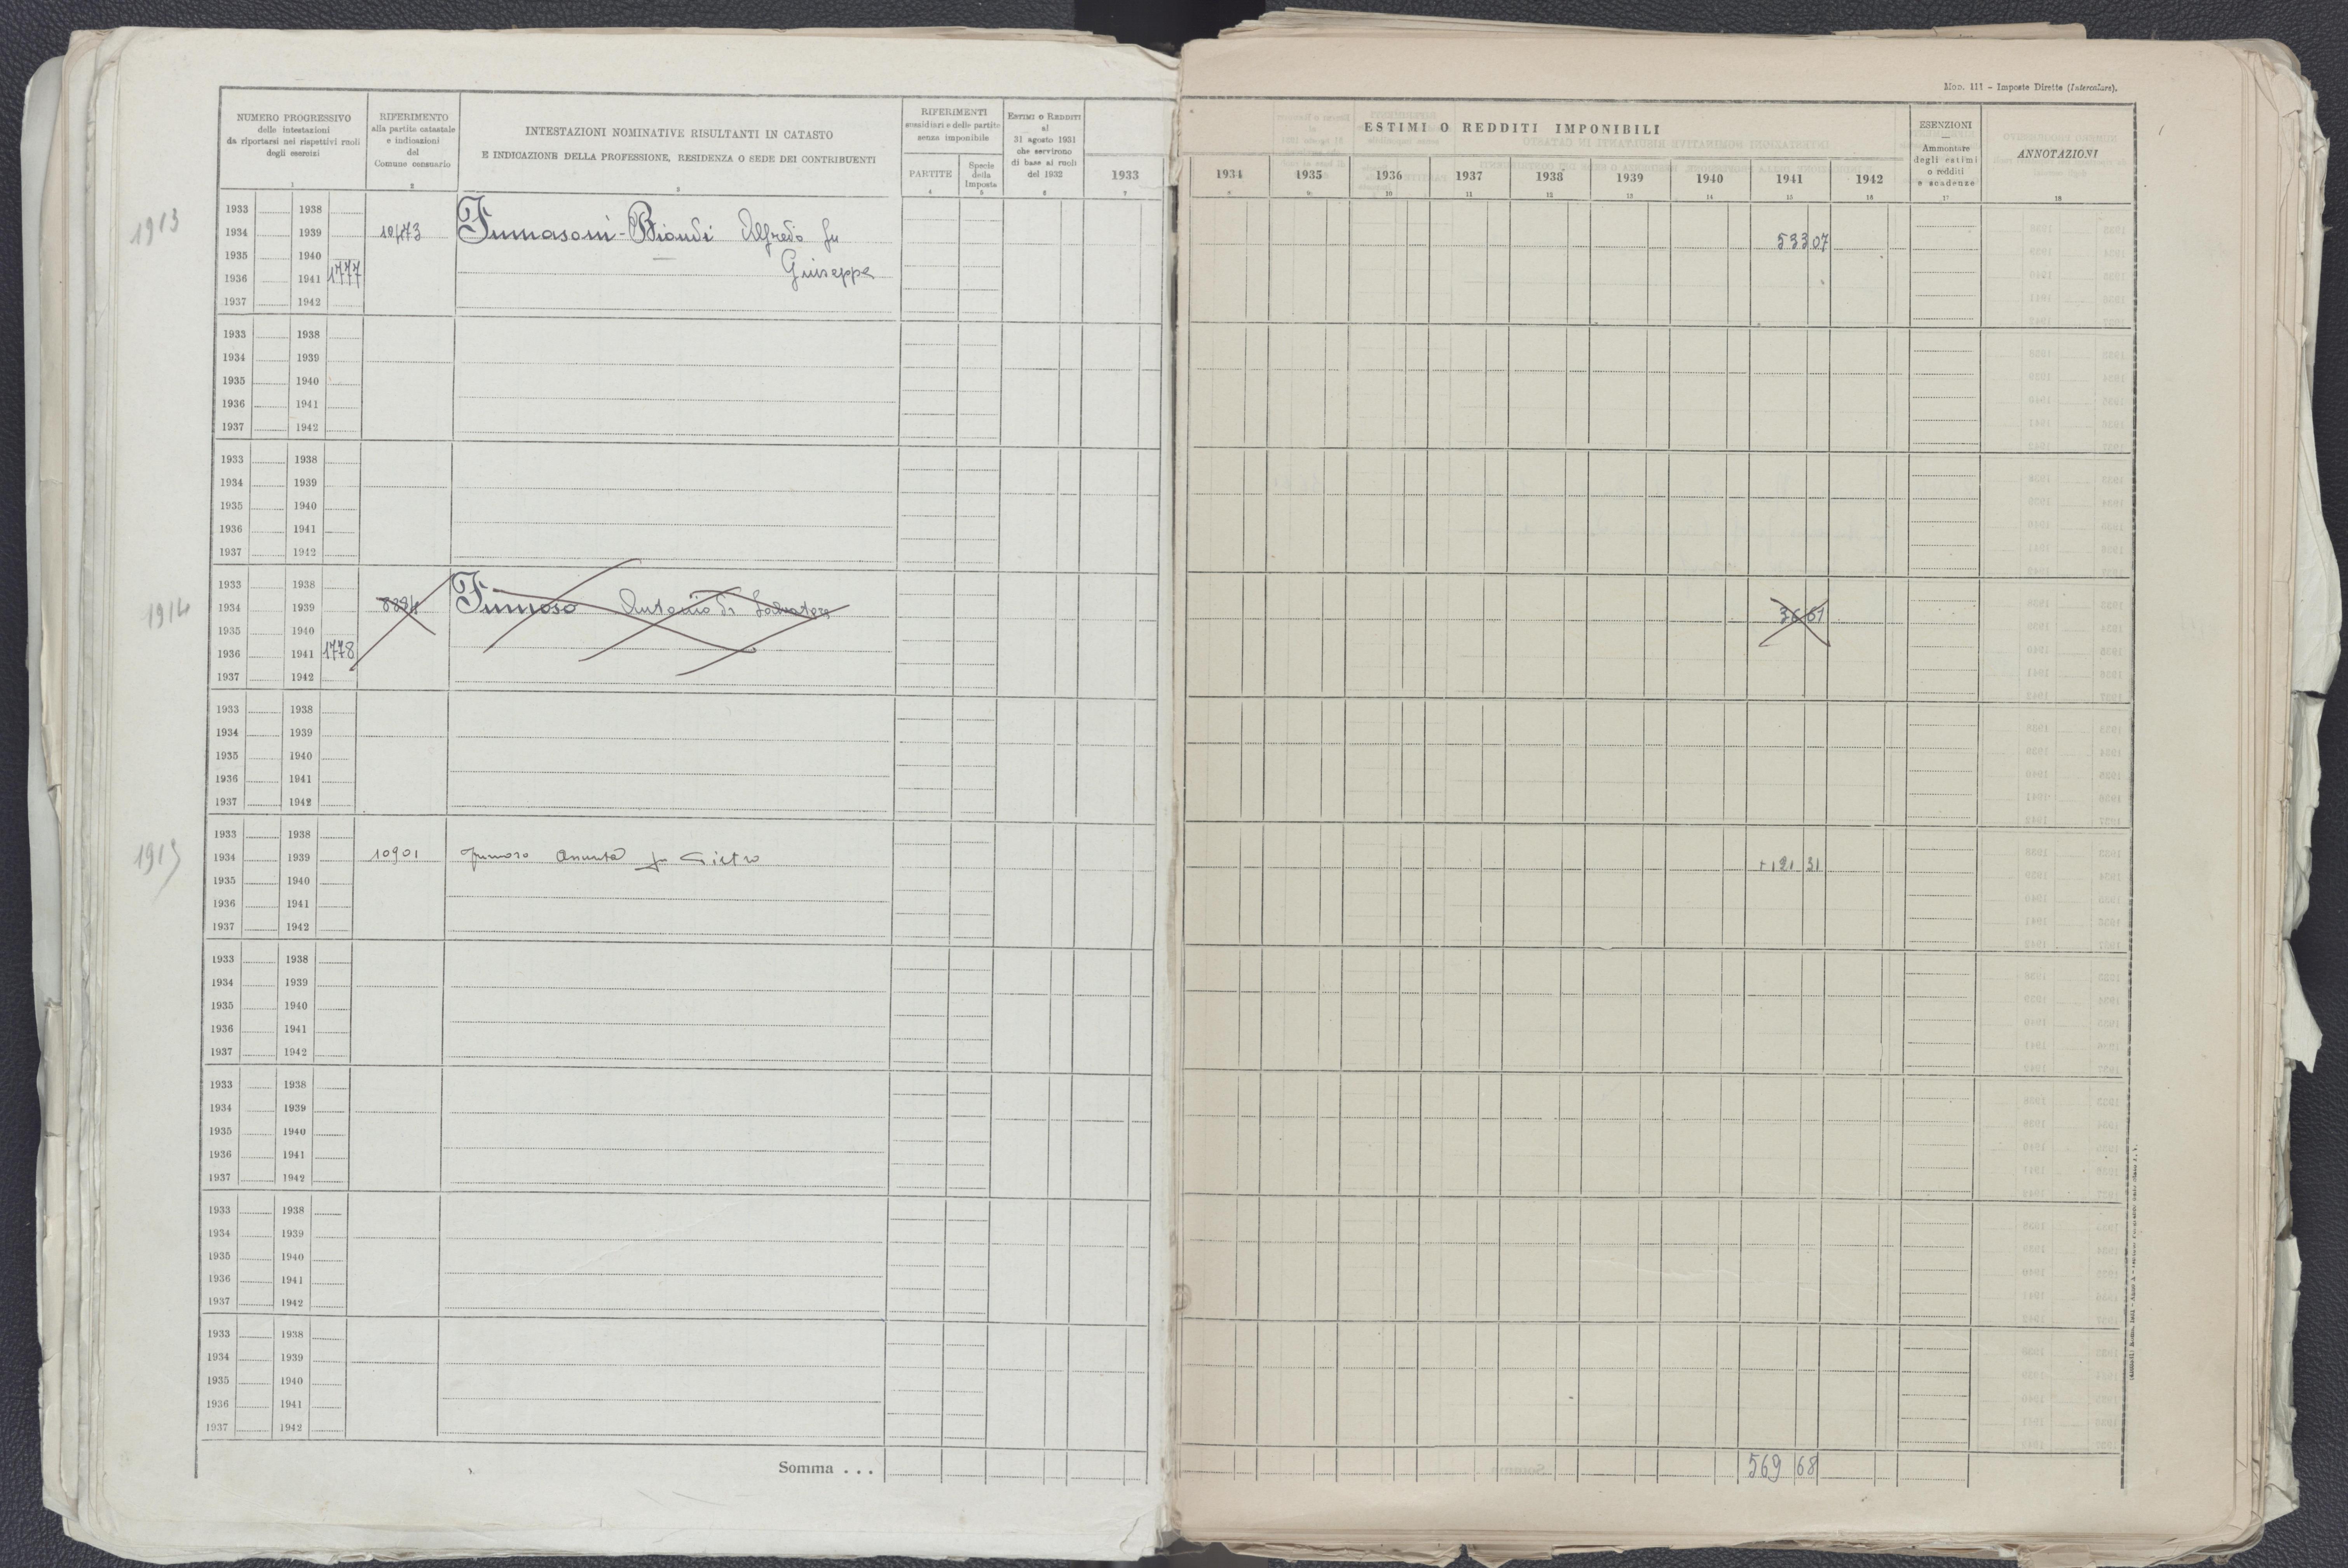 Mod. 111 - Imposte Dirette (Intercalare).
NUMERO PROGRESSIVO
delle intestazioni
da riportarsi nei rispettivi ruoli
degli esercizi
1
RIFERIMENTO
alla partita catastale
e indicazioni
del
Comune censuario
2
INTESTAZIONI NOMINATIVE RISULTANTI IN CATASTO
E INDICAZIONE DELLA PROFESSIONE, RESIDENZA O SEDE DEI CONTRIBUENTI
3
RIFERIMENTI
sussidiari e delle partite
senza imponibile
PARTITE
4
Specie
della
Imposta
5
ESTIMI O REDDITI
al
31 agosto 1931
che servirono
di base ai ruoli
del 1932
6
ESTIMI O REDDITI IMPONIBILI
1933 1934 1935 1936 1937 1938 1939 1940 1941 1942
7 8 9 10 11 12 13 14 15 16
ESENZIONI
Ammontare
degli estimi
o redditi
e scadenze
17
ANNOTAZIONI
18
1913
1933 1938
1934 1939 10473 Fumasoni-Biondi Alfredo fu 533 07
1935 1940 Giuseppe
1936 1941 1777
1937 1942
1933 1938
1934 1939
1935 1940
1936 1941
1937 1942
1933 1938
1934 1939
1935 1940
1936 1941
1937 1942
1914
1933 1938
1934 1939 Fumoso Antonio di Salvatore 36 61
1935 1940
1936 1941 1778
1937 1942
1933 1938
1934 1939
1935 1940
1936 1941
1937 1942
1915
1933 1938
1934 1939 10901 Fumoso Anunta fu Pietro +121 31
1935 1940
1936 1941
1937 1942
1933 1938
1934 1939
1935 1940
1936 1941
1937 1942
1933 1938
1934 1939
1935 1940
1936 1941
1937 1942
1933 1938
1934 1939
1935 1940
1936 1941
1937 1942
1933 1938
1934 1939
1935 1940
1936 1941
1937 1942
Somma . . . 569 68